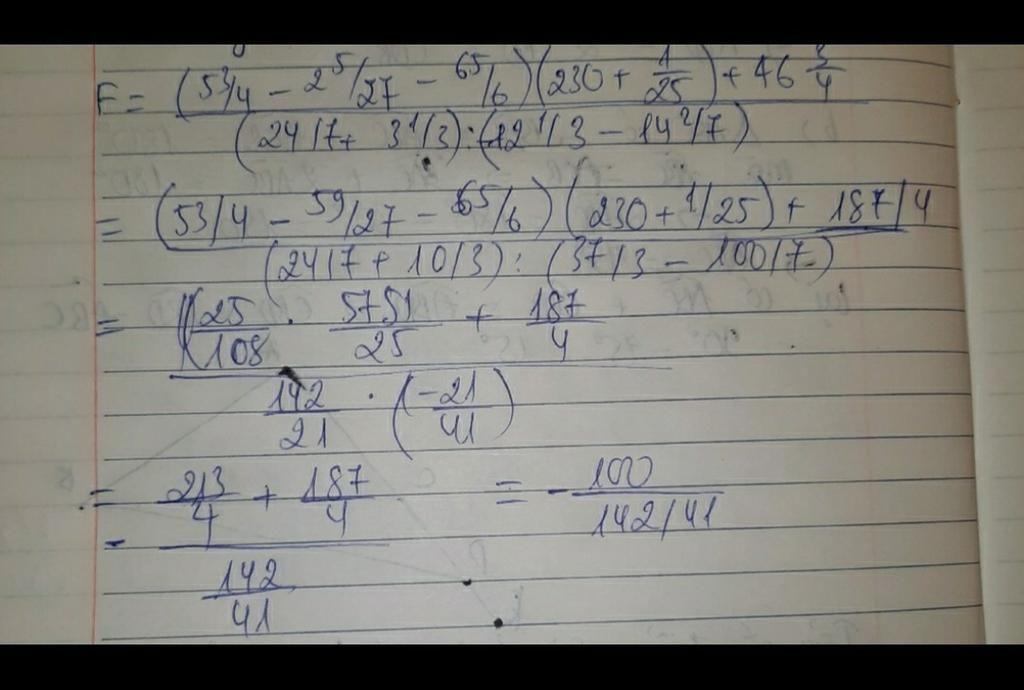 F = (53/4 - 2 5/27 - 65/6)(230 + 1/25) + 46 3/4
(24/7 + 3 1/3) : (12 1/3 - 14 2/7)
= (53/4 - 59/27 - 65/6)(230 + 1/25) + 187/4
(24/7 + 10/3) : (37/3 - 100/7)
= 25/108 . 5751/25 + 187/4
142/21 . (-21/41)
= 213/4 + 187/4 = - 100
- 142/41
142/41